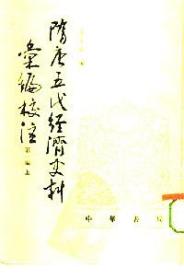 隋唐五代经济史料
汇编校注
第一编上
中华书局